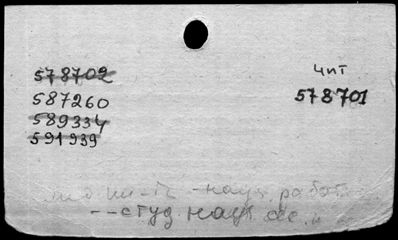 578702
587260
589334
591939
чит
578701
науч. работ
--студ. науч.